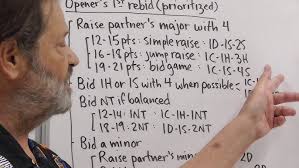 Opener's 1st rebid (prioritized)
Raise partner's major with 4
12-15 pts: simple raise: 1D-1S-2S
16-18 pts: jump raise: 1C-1H-3H
19-21 pts: bid game: 1C-1S-4S
Bid 1H or 1S with 4 when possible < 1C-1
Bid NT if balanced
12-14: 1NT: 1C-1H-1NT
18-19: 2NT: 1D-1S-2NT
Bid a minor
Raise partner's minor 2D
2D